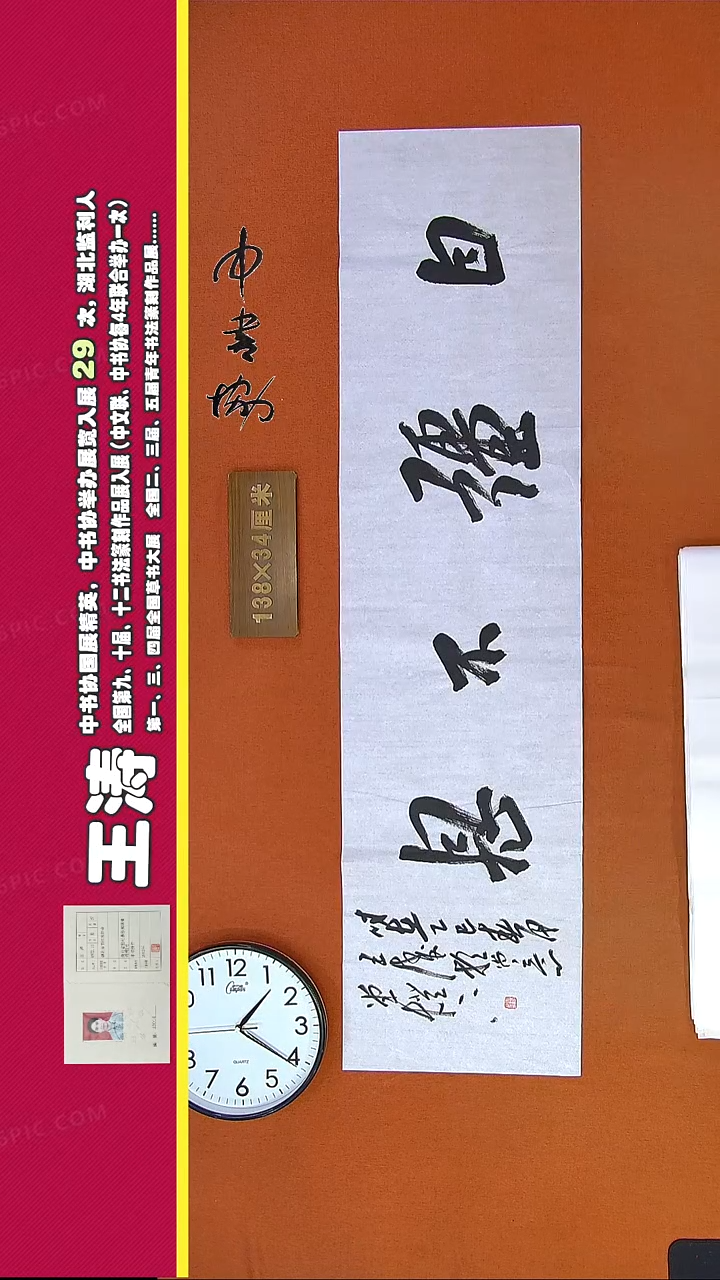 王涛
中书协国展精英，中书协举办展览入展 29 次，湖北监利人
全国第九、十届、十二书法篆刻作品展入展（中文联、中书协每4年联合举办一次）
第一、三、四届全国草书大展 全国二、三届、五届青年书法篆刻作品展……
中書協
138×34厘米
自強不息
11 12 1 2 3 4 5 6 7 8
QUARTZ